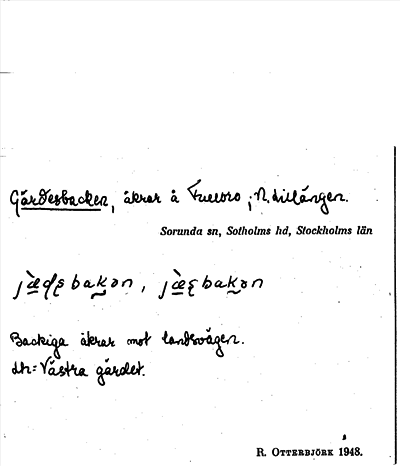 Gärdesbacken, åkrar å Fulbro; N. Lillängen.
Sorunda sn, Sotholms hd, Stockholms län
Backiga åkrar mot landsvägen.
dh: Västra gärdet.
R. OTTERBJÖRK 1948.